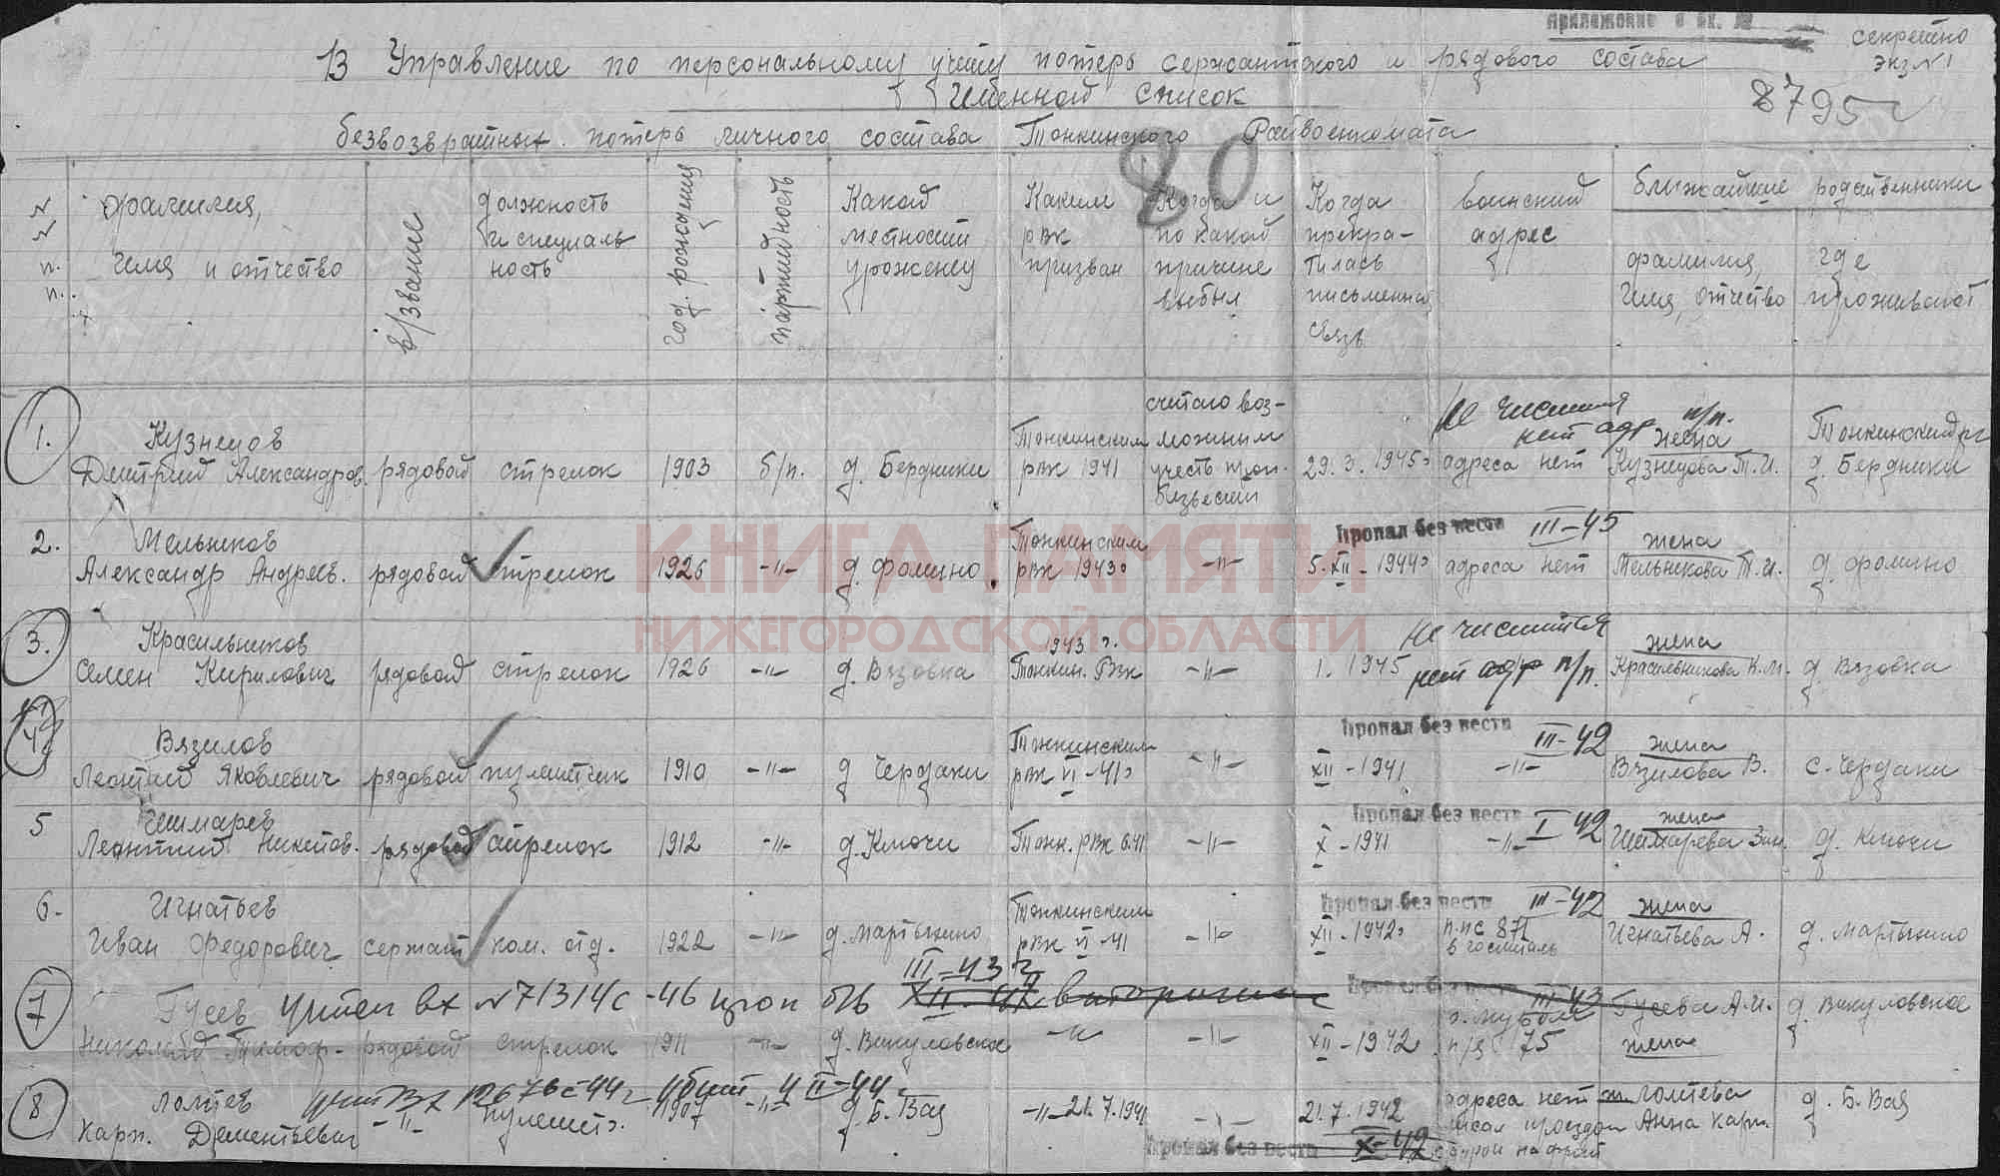 Приложение к вх. №
секретно
экз №1
В Управление по персональному учету потерь сержантского и рядового состава
Именной список
8795
безвозвратных потерь личного состава Тонкинского Райвоенкомата
80
№ № п. п. фамилия, имя и отчество в/звание должность и специальность год рождения партийность Какой местности уроженец Каким рвк призван Когда и по какой причине выбыл Когда прекратилась письменная связь воинский адрес ближайшие родственники
фамилия, имя, отчество где проживают
1. Кузнецов Дмитрий Александров. рядовой стрелок 1903 б/п. д. Бердники Тонкинским рвк 1941 считаю возможным учесть проп. без вести 29.3.1945г адреса нет жена Кузнецова Т.И. Тонкинский рн д. Бердники
Не числится нет адр п/п.
Пропал без вести III-45
2. Мельников Александр Андреев. рядовой стрелок 1926 -"- д. Фомино Тонкинским рвк 1943г -"- 5.XII-1944г адреса нет жена Мельникова Т.И. д. Фомино
КНИГА ПАМЯТИ
НИЖЕГОРОДСКОЙ ОБЛАСТИ
3. Красильников Семен Кирилович рядовой стрелок 1926 -"- д. Вязовка 1943 г. Тонкин. Рвк -"- 1. 1945 жена Красильникова К.М. д. Вязовка
не числится нет адр п/п.
Пропал без вести III-42
4 Вязилов Леонтий Яковлевич рядовой пулеметчик 1910 -"- д Чердаки Тонкинским рвк VI-41г -"- XII-1941 -"- жена Вязилова В. с. Чердаки
Пропал без вести I 42
5 Шмарев Леонтий Никитов. рядовой стрелок 1912 -"- д. Ключи Тонк. рвк 6.41 -"- X-1941 -"- жена Шмарева Зин. д. Ключи
Пропал без вести III-42
6. Игнатьев Иван Федорович сержант ком. отд. 1922 -"- д. Мартынино Тонкинским рвк VI-41 -"- XII-1942г ппс 871 в госпиталь жена Игнатьева А. д. Мартынино
III-43 г
Пропал без вести III-43
7 Гусев учтен вх №71314с-46 проп б/в XII-42 вторично
Николай Тимоф. рядовой стрелок 1911 -"- д. Викуловское -"- -"- XII-1942 г. Муром п/я 75 Гусева А.И. жена д. Викуловское
8 Лаптев учт Вх 12676с-44г убит 4 II-44
Карп. Дементьевич -"- пулемет. 1907 -"- д. Б. Вая -"- 21.7.1941 -"- 21.7.1942 адреса нет писал проездом Анна Карп. д. Б. Вая
Пропал без вести X-42